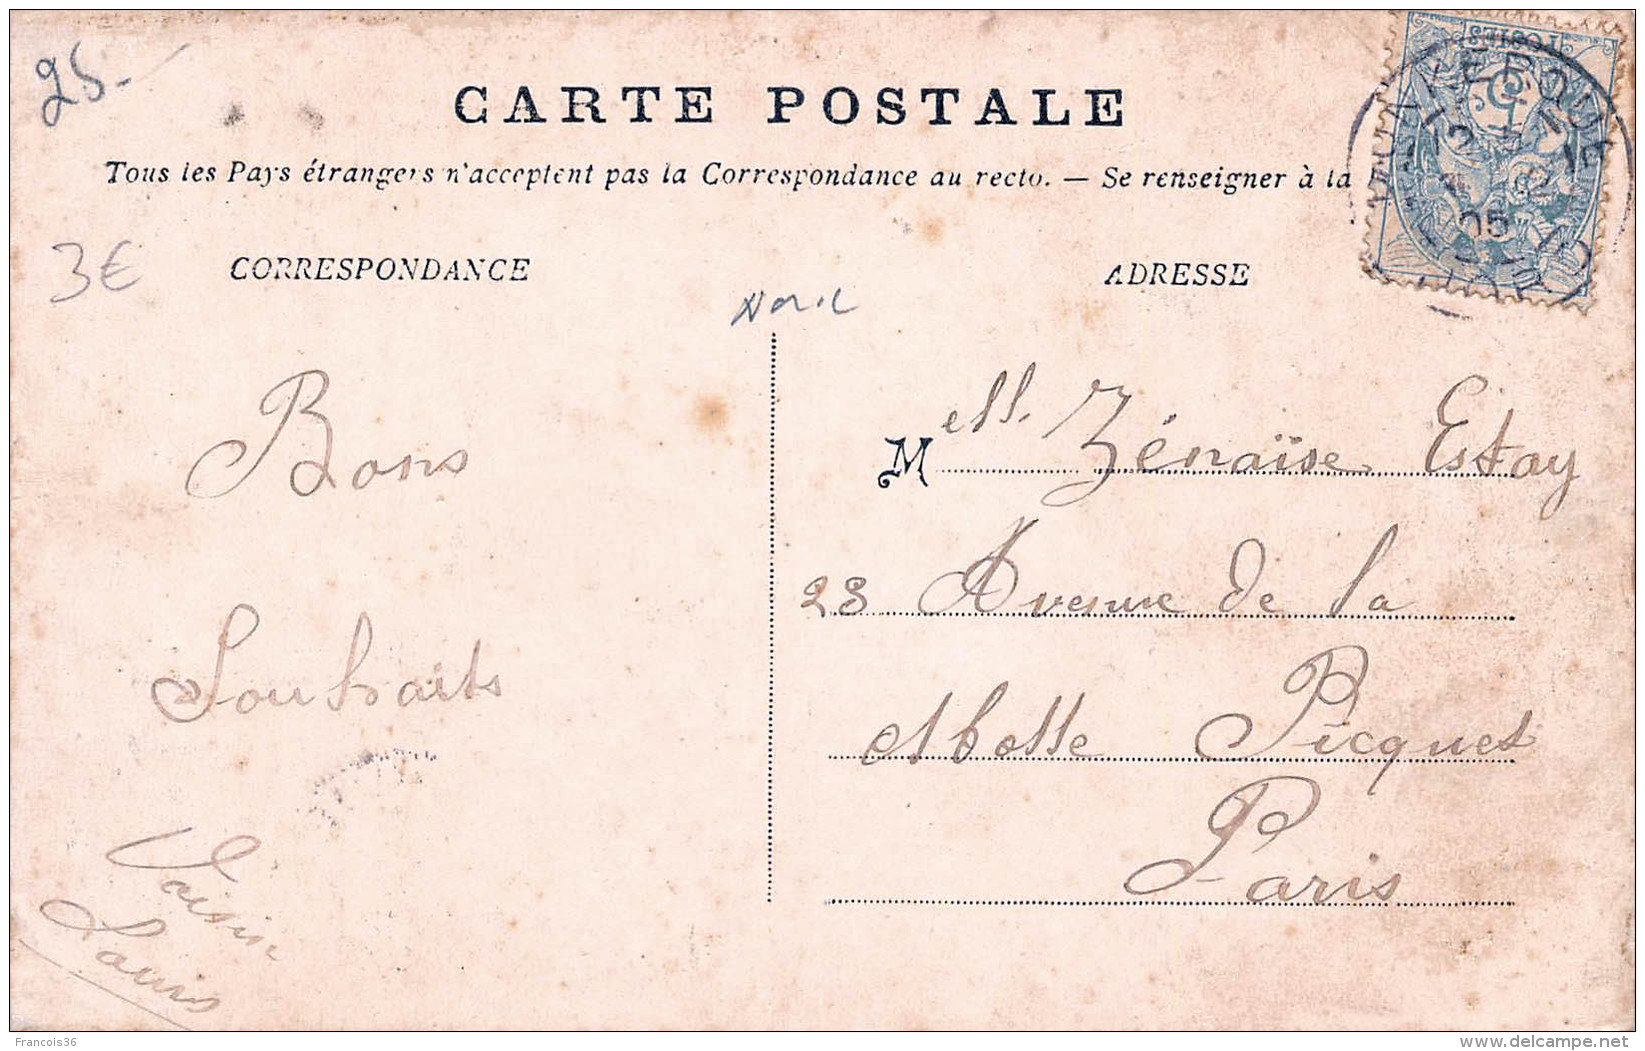 25-
CARTE POSTALE
Tous les Pays étrangers n'acceptent pas la Correspondance au recto. — Se renseigner à la
POSTES
5
DUNKERQUE
05
NORD
3€
CORRESPONDANCE
Nord
ADRESSE
Bons
Souhaits
Voisin
Louis
Mell. Zénaïse Estay
23 Avenue de la
Motte Picquet
Paris
Francois36
www.delcampe.net